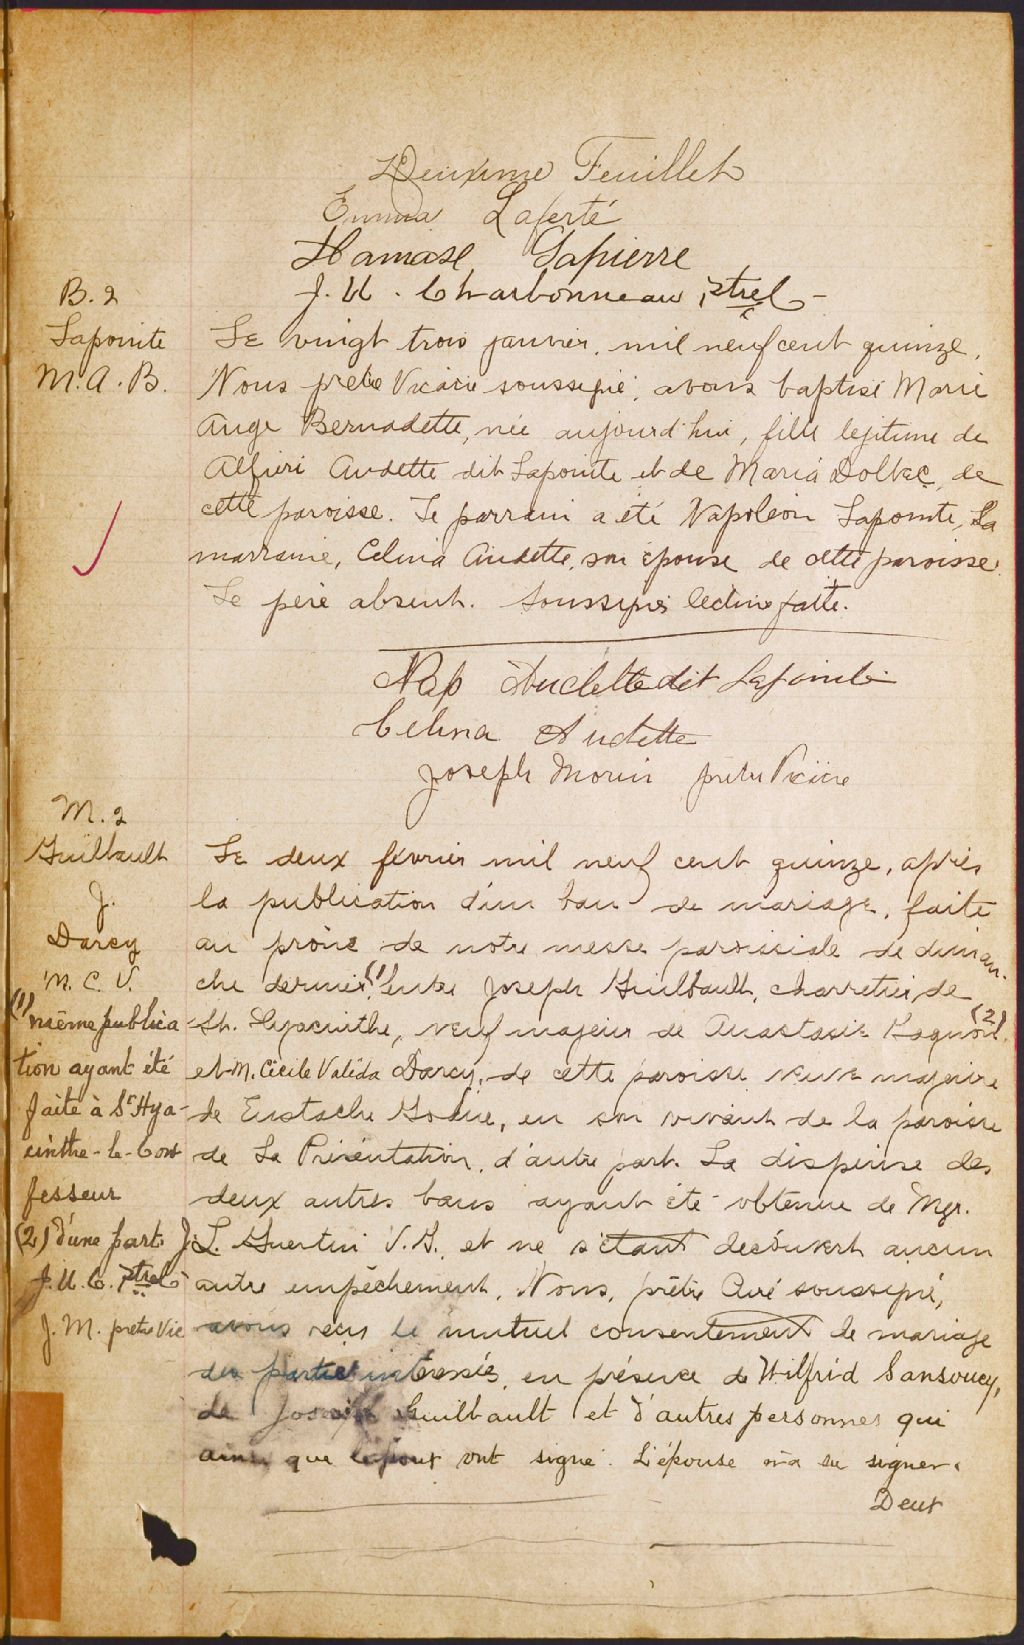 Deuxime Feuillet
Emma Laferté
Damase Lapierre
J. U. Charbonneau, ptre
B. 2
Lapointe
M. A. B.
Le vingt trois janvier, mil neuf cent quinze,
Nous pretre Vicaire soussigné, avons baptisé Marie
Ange Bernadette, née aujourd'hui, fille legitime de
Alfieri Audette dit Lapointe et de Maria Dolbec, de
cette paroisse. Le parrain a été Napoléon Lapointe, La
marraine, Celina Audette, son épouse de cette paroisse.
Le père absent. Soussignés lecture faite.
Nap Audette dit Lapointe
Celina Audette
Joseph Morin pretre Vicaire
M. 2
Guilbault
J.
Darcy
M. C. V.
(1) même publica
tion ayant été
faite à St Hya-
cinthe-le-Con
fesseur
(2) d'une part.
J. U. C. ptre
J. M. pretre Vic
Le deux février mil neuf cent quinze, après
la publication d'un ban de mariage, faite
au prône de notre messe paroissiale de diman-
che dernier, (1) entre Joseph Guilbault, charretier de
St. Hyacinthe, veuf majeur de Anastasie (2)
et M. Cécile Valida Darcy, de cette paroisse veuve majeure
de Eustache, en son vivant de la paroisse
de La Présentation, d'autre part. La dispense des
deux autres bans ayant été obtenue de Mgr.
J. L. Guertin V. G., et ne s'étant découvert aucun
autre empêchement, Nous, prêtre Curé soussigné,
avons reçu le mutuel consentement de mariage
des parties intéressées, en présence de Wilfrid Sansoucy,
de Joseph Guilbault et d'autres personnes qui
ainsi que l'époux ont signé. L'épouse n'a su signer.
Deux